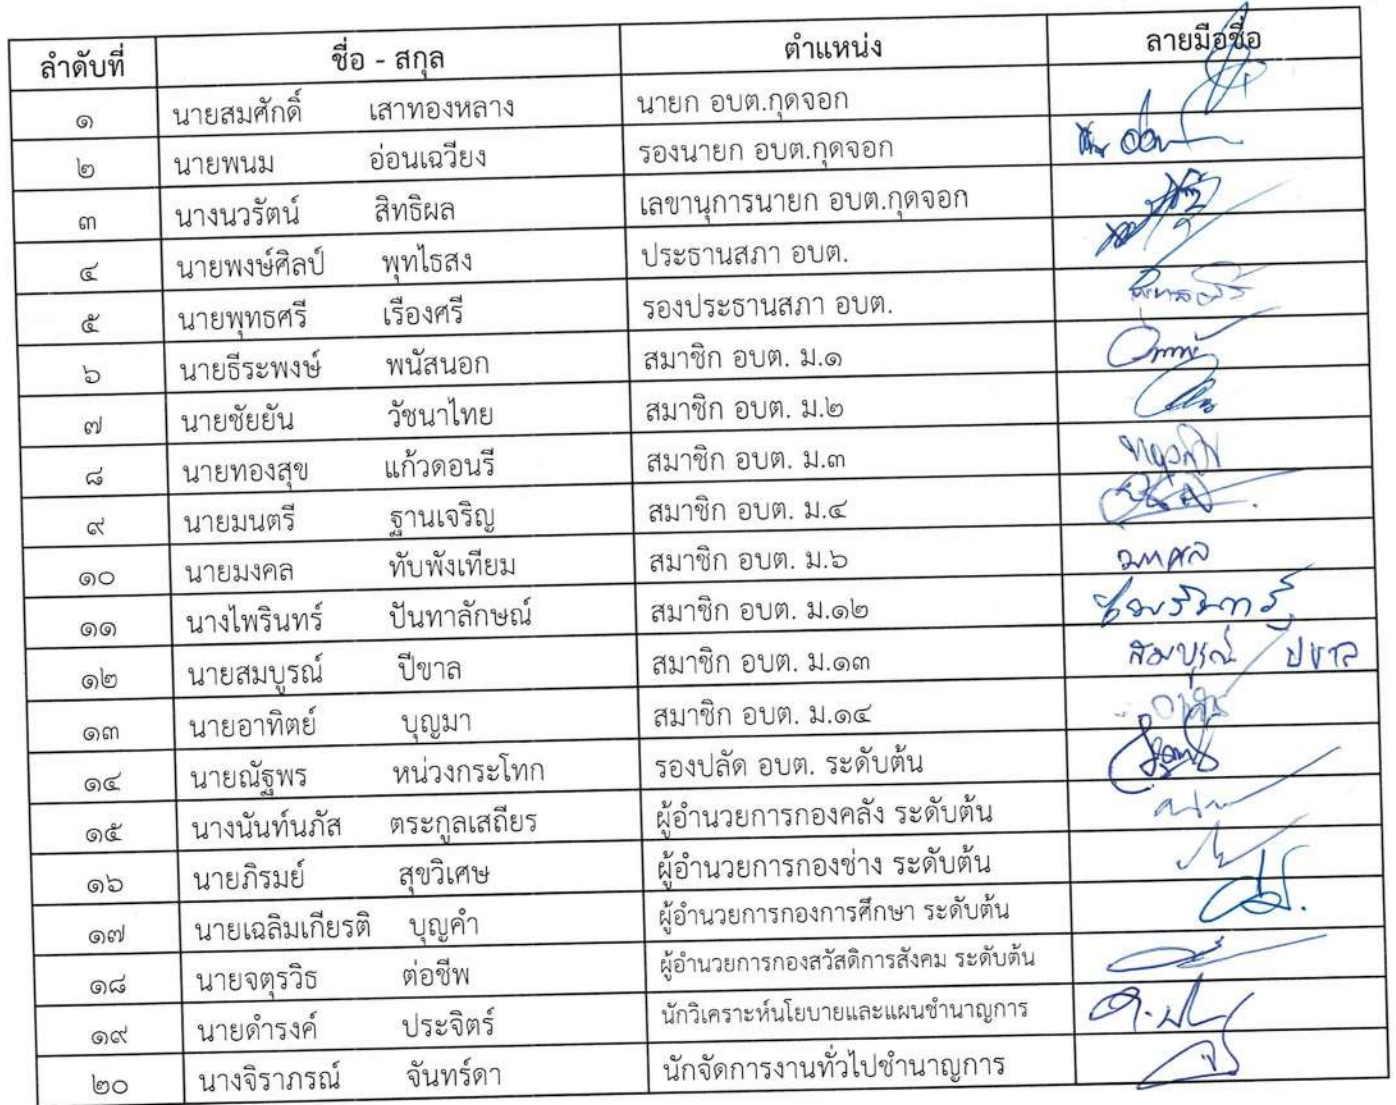 ลำดับที่ ชื่อ - สกุล ตำแหน่ง ลายมือชื่อ
๑ นายสมศักดิ์ เสาทองหลาง นายก อบต.กุดจอก
๒ นายพนม อ่อนเฉวียง รองนายก อบต.กุดจอก
๓ นางนวรัตน์ สิทธิผล เลขานุการนายก อบต.กุดจอก
๔ นายพงษ์ศิลป์ พุทไธสง ประธานสภา อบต.
๕ นายพุทธศรี เรืองศรี รองประธานสภา อบต.
๖ นายธีระพงษ์ พนัสนอก สมาชิก อบต. ม.๑
๗ นายชัยยัน วัชนาไทย สมาชิก อบต. ม.๒
๘ นายทองสุข แก้วดอนรี สมาชิก อบต. ม.๓
๙ นายมนตรี ฐานเจริญ สมาชิก อบต. ม.๔
๑๐ นายมงคล ทับพังเทียม สมาชิก อบต. ม.๖ มงคล
๑๑ นางไพรินทร์ ปันทาลักษณ์ สมาชิก อบต. ม.๑๒
๑๒ นายสมบูรณ์ ปีขาล สมาชิก อบต. ม.๑๓ สมบูรณ์ ปีขาล
๑๓ นายอาทิตย์ บุญมา สมาชิก อบต. ม.๑๔
๑๔ นายณัฐพร หน่วงกระโทก รองปลัด อบต. ระดับต้น
๑๕ นางนันท์นภัส ตระกูลเสถียร ผู้อำนวยการกองคลัง ระดับต้น
๑๖ นายภิรมย์ สุขวิเศษ ผู้อำนวยการกองช่าง ระดับต้น
๑๗ นายเฉลิมเกียรติ บุญคำ ผู้อำนวยการกองการศึกษา ระดับต้น
๑๘ นายจตุรวิธ ต่อชีพ ผู้อำนวยการกองสวัสดิการสังคม ระดับต้น
๑๙ นายดำรงค์ ประจิตร์ นักวิเคราะห์นโยบายและแผนชำนาญการ
๒๐ นางจิราภรณ์ จันทร์ดา นักจัดการงานทั่วไปชำนาญการ